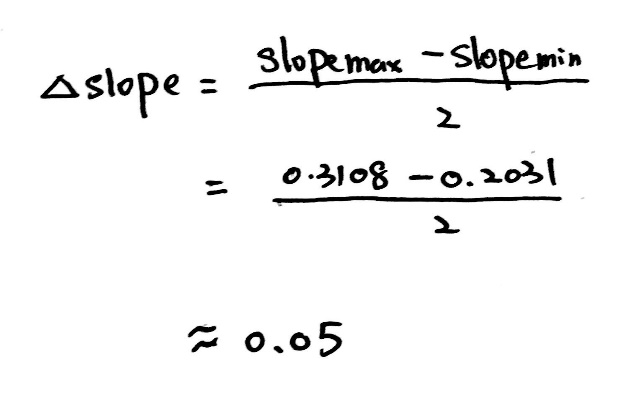 △slope = slopemax - slopemin / 2
= 0.3108 - 0.2031 / 2
≈ 0.05